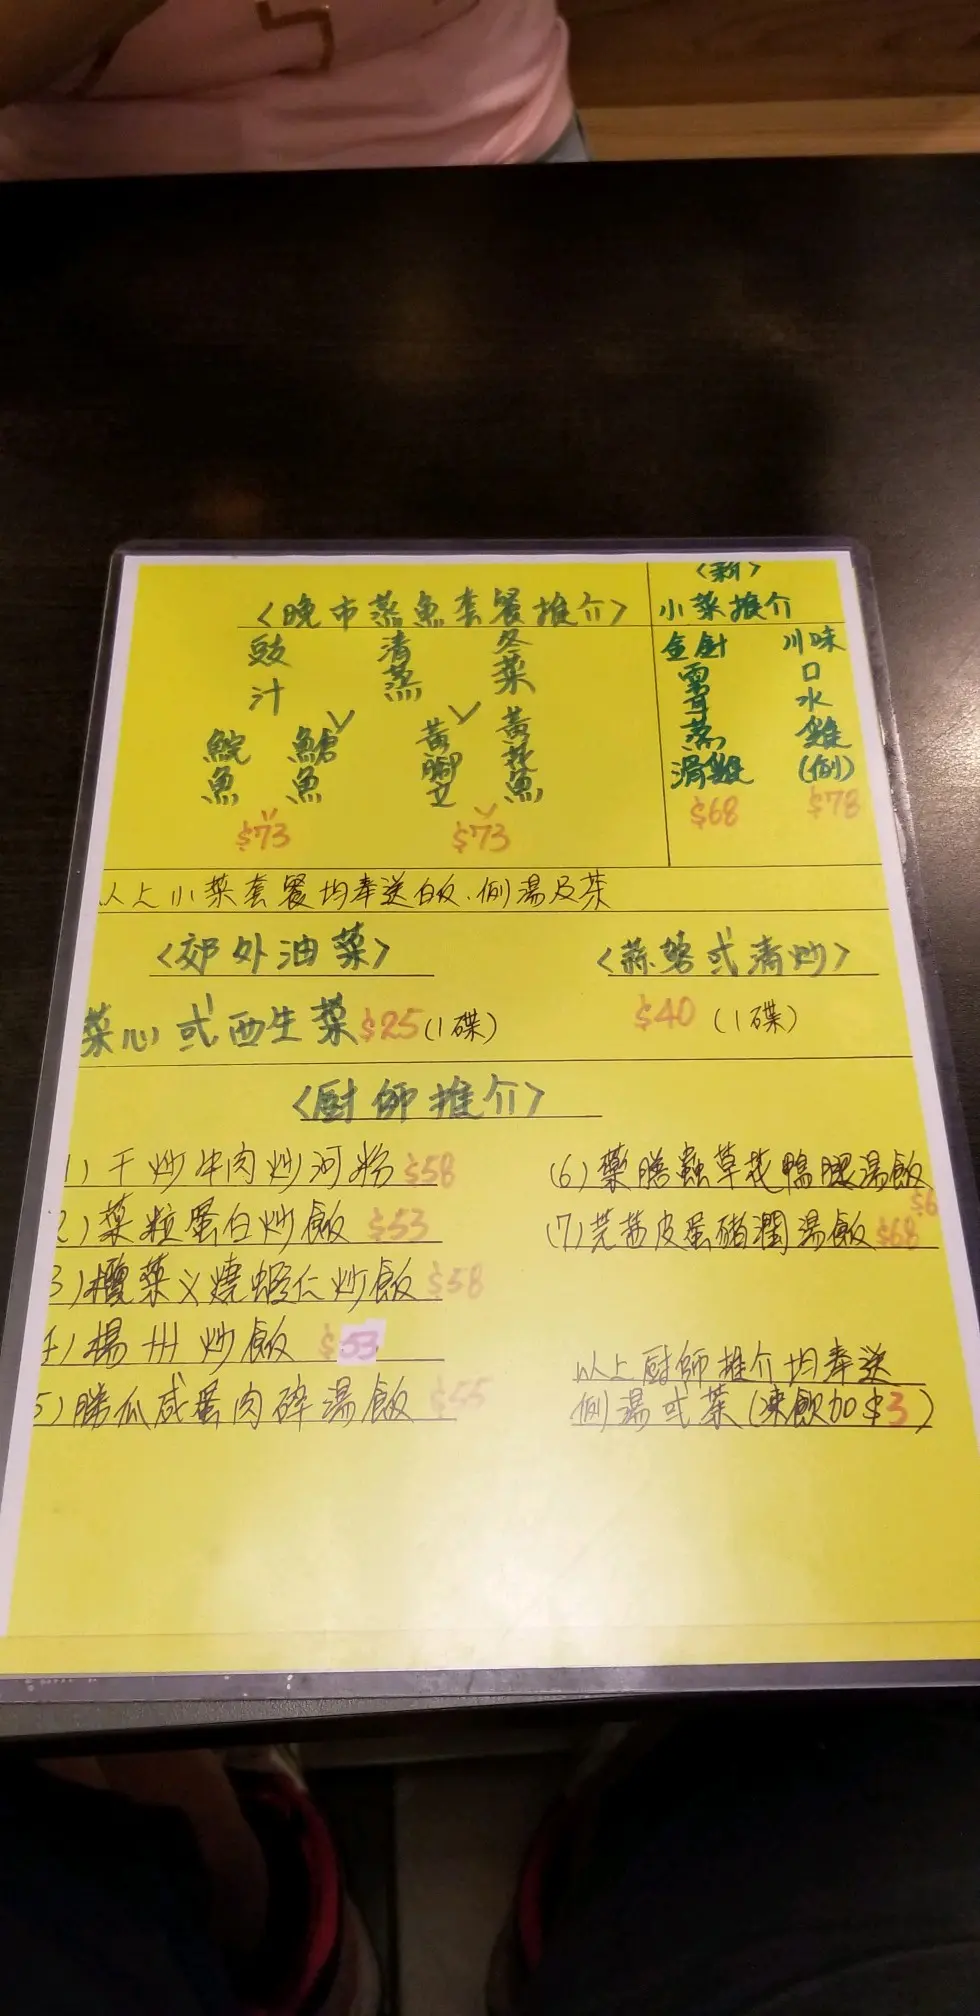 〈晚市蒸魚套餐推介〉
豉汁
清蒸
冬菜
鯇魚
鯧魚
黃腳立
黃花魚
$73
$73
〈新〉
小菜推介
金針雲耳蒸滑雞
$68
川味口水雞(例)
$78
以上小菜套餐均奉送白飯.例湯及茶
〈郊外油菜〉
菜心或西生菜$25(1碟)
〈蒜蓉或清炒〉
$40 (1碟)
〈厨師推介〉
1)干炒牛肉炒河粉 $58
2)菜粒蛋白炒飯 $53
3)欖菜义燒蝦仁炒飯 $58
4)楊州炒飯 $53
5)勝瓜咸蛋肉碎湯飯 $55
(6)藥膳蟲草花鴨腿湯飯
$6
(7)芫茜皮蛋豬潤湯飯 $68
以上厨師推介均奉送
例湯或茶(凍飲加$3)